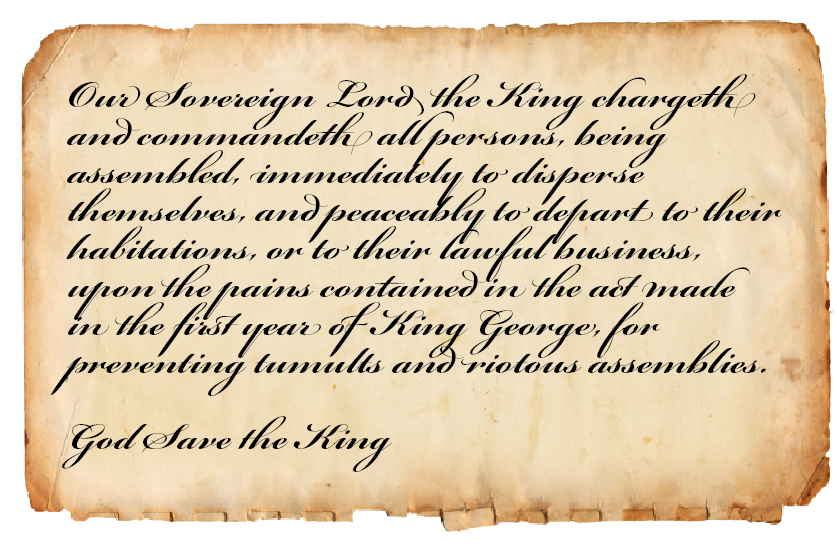 Our Sovereign Lord the King chargeth
and commandeth all persons, being
assembled, immediately to disperse
themselves, and peaceably to depart to their
habitations, or to their lawful business,
upon the pains contained in the act made
in the first year of King George, for
preventing tumults and riotous assemblies.

God Save the King